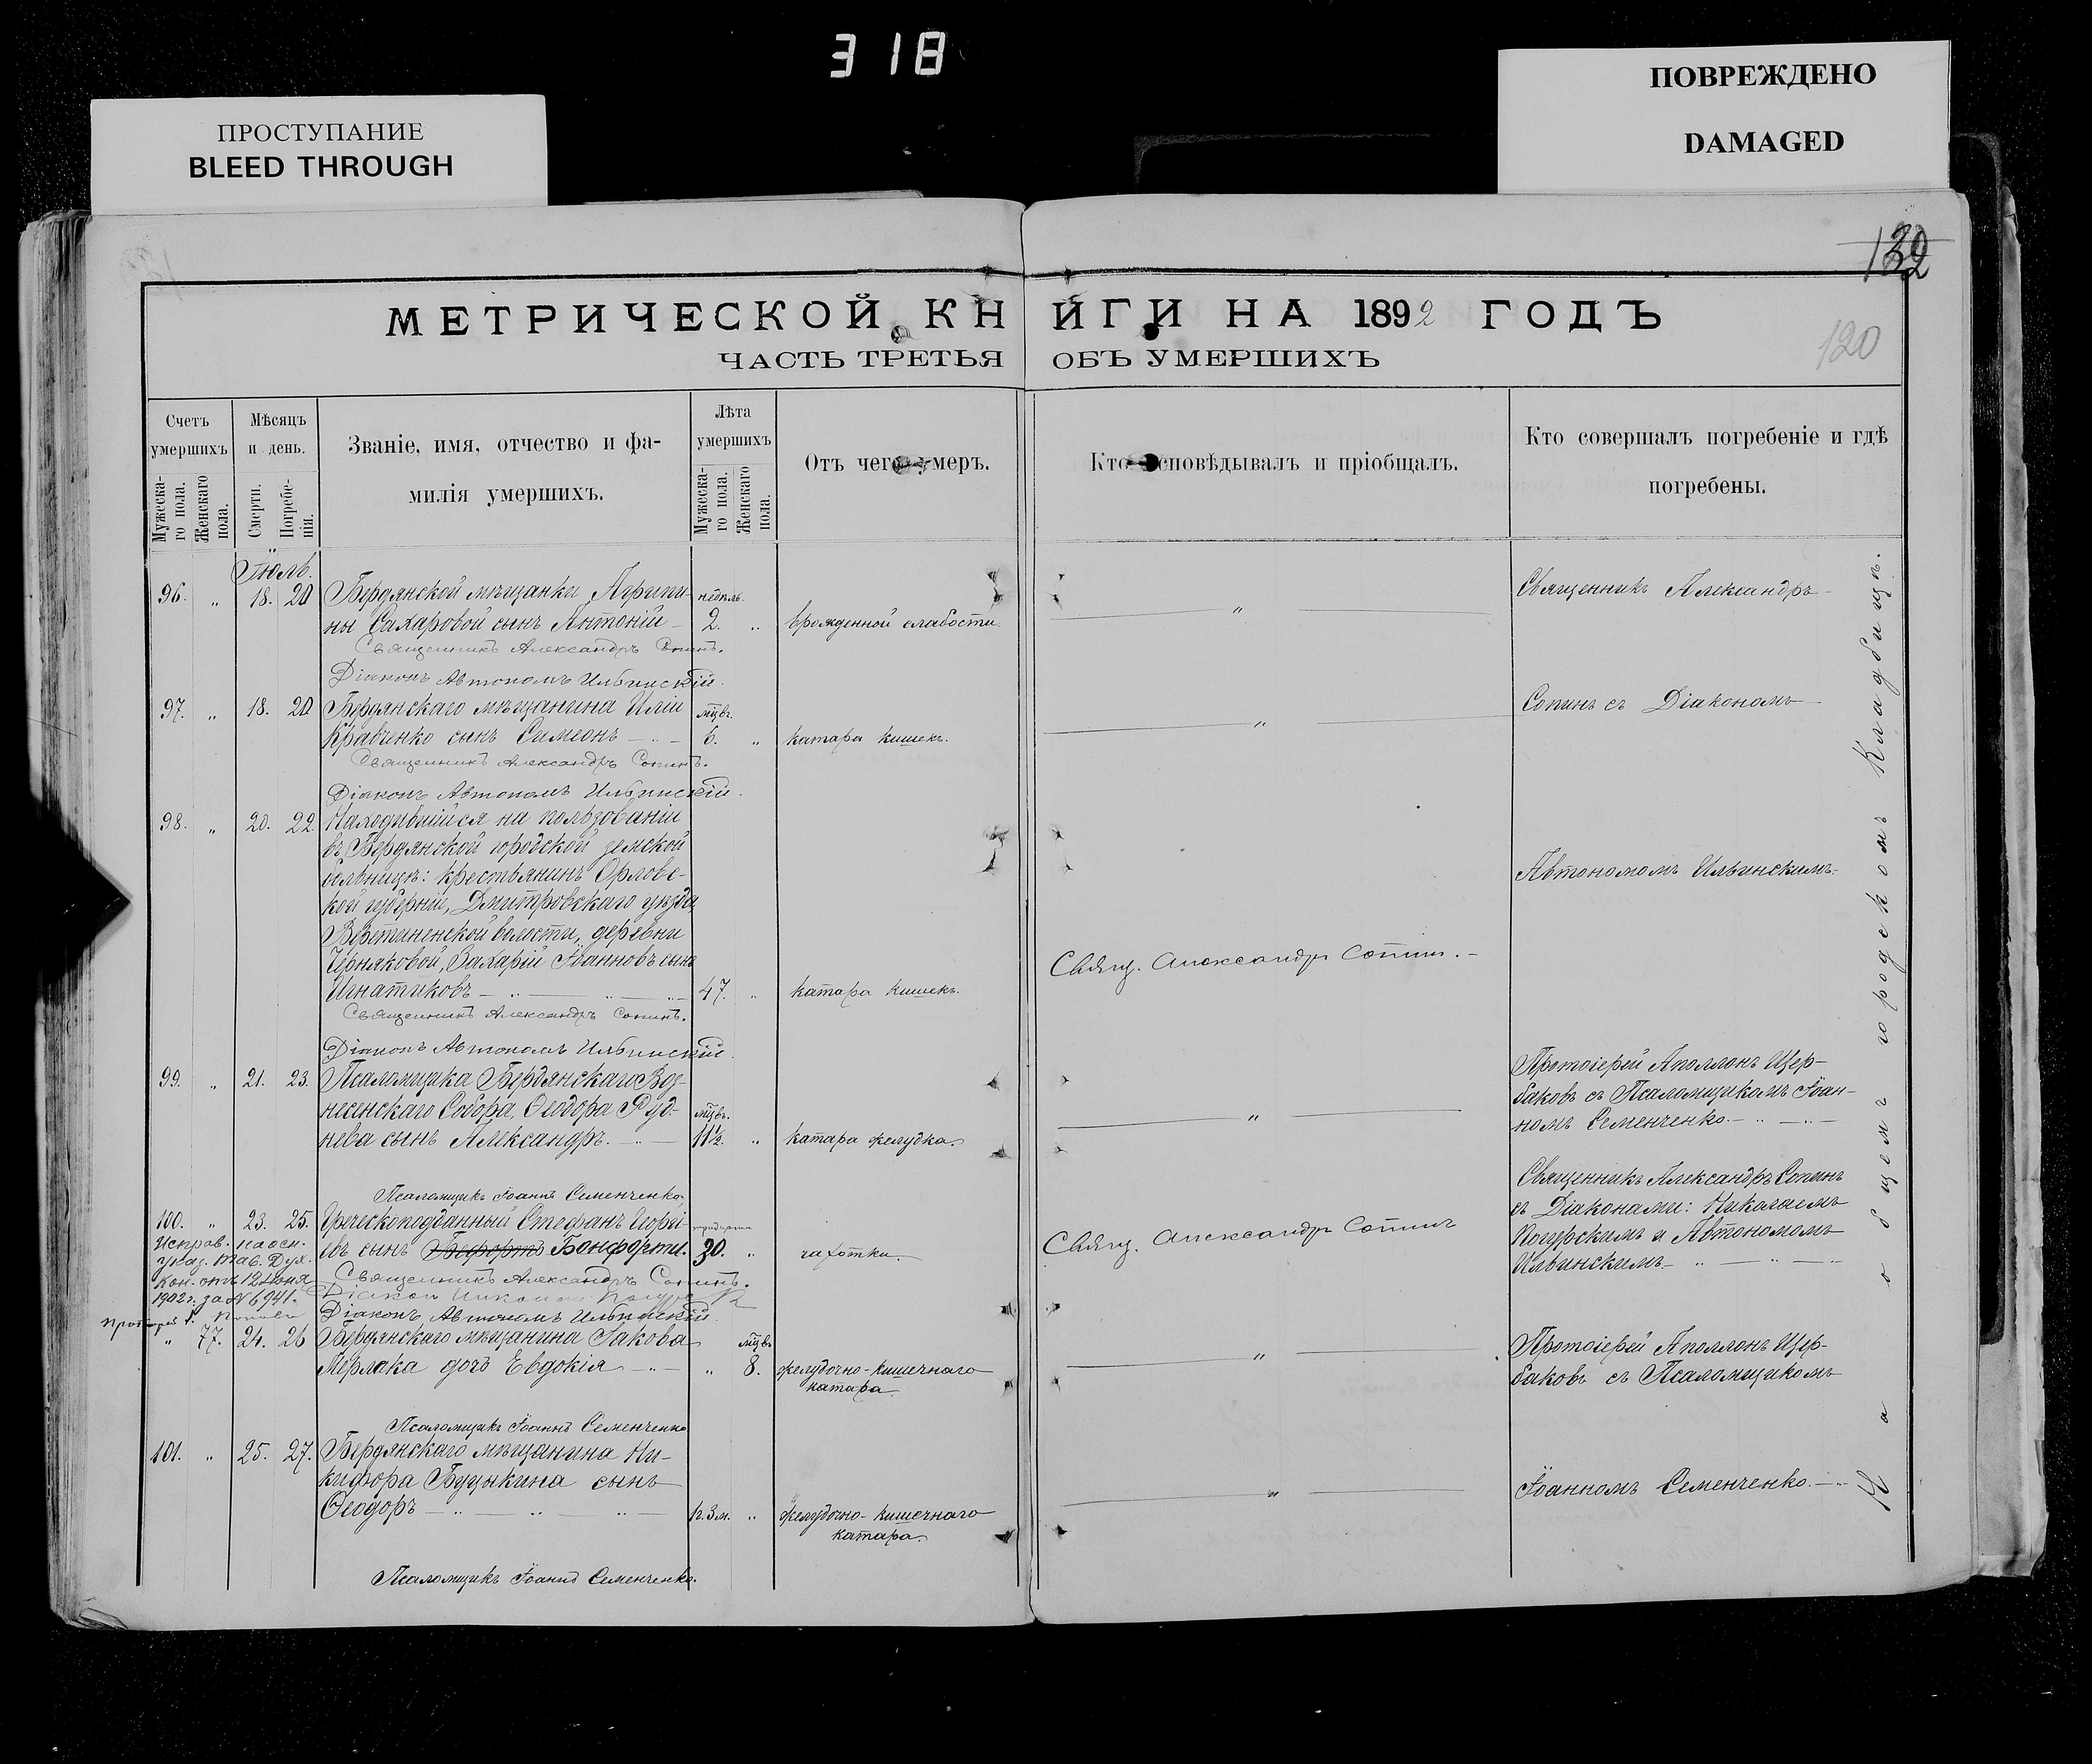 318
ПРОСТУПАНИЕ
BLEED THROUGH
ПОВРЕЖДЕНО
DAMAGED
132
120
МЕТРИЧЕСКОЙ КНИГИ НА 1892 ГОДЪ
ЧАСТЬ ТРЕТЬЯ ОБЪ УМЕРШИХЪ
Счетъ умершихъ
Мужеска-
го пола.
Женскаго
пола.
Мѣсяцъ и день.
Смерти.
Погребе-
нія.
Званіе, имя, отчество и фа-
милія умершихъ.
Лѣта умершихъ
Мужеска-
го пола.
Женскаго
пола.
Отъ чего умеръ.
Кто исповѣдывалъ и пріобщалъ.
Кто совершалъ погребеніе и гдѣ
погребены.
Іюль.
96. " 18. 20 Бердянской мѣщанки Агрипи- недѣль. Священникъ Александръ
ны Сахаровой сынъ Антоній 2. " врожденной слабости. "
Священникъ Александръ Сопинъ.
Діаконъ Автономъ Ильинскій.
97. " 18. 20. Бердянскаго мѣщанина Иліи мцвъ. " Сопинъ съ Діакономъ
Кравченко сынъ Симеонъ 6. " катара кишекъ.
Священникъ Александръ Сопинъ.
Діаконъ Автономъ Ильинскій.
98. " 20. 22. Находившійся на пользованіи
въ Бердянской городской земской
больницѣ: крестьянинъ Орловс- Автономомъ Ильинскимъ.
кой губерніи, Дмитровскаго уѣзда,
Веретиненской волости, деревни
Черняковой, Захарій Іоанновъ сынъ Свящ. Александръ Сопинъ.
Игнатиковъ 47. " катара кишекъ.
Священникъ Александръ Сопинъ.
Діаконъ Автономъ Ильинскій.
99. " 21. 23. Псаломщика Бердянскаго Воз- Протоіерей Аполлонъ Щер-
несенскаго Собора, Ѳеодора Руд- мцвъ. " баковъ съ Псаломщикомъ Іоан-
нева сынъ Александръ. 11½. " катара желудка. номъ Семенченко.
Псаломщикъ Іоаннъ Семенченко. Священникъ Александръ Сопинъ
100. " 23. 25. Греческоподданный Стефанъ Георгі- съ Діаконами: Николаемъ
евъ сынъ Бонфорти. 30. " чахотки. Свящ. Александръ Сопинъ и Автономомъ
Ильинскимъ
Исправ. на осн.
указ. Тав. Дух.
Кон. отъ 12 Іюня
1902 г. за № 6941.
Священникъ Александръ Сопинъ.
Діаконъ
Діаконъ Автономъ Ильинскій.
" 77. 24. 26 Бердянскаго мѣщанина Іакова мцвъ Протоіерей Аполлонъ Щер-
дочь Евдокія " 8. желудочно-кишечнаго " баковъ съ Псаломщикомъ
катара.
Псаломщикъ Іоаннъ Семенченко
101. " 25. 27. Бердянскаго мѣщанина Ни-
кифора сынъ Іоанномъ Семенченко.
Ѳеодоръ 3 м. " желудочно-кишечнаго "
катара.
Псаломщикъ Іоаннъ Семенченко.
На общемъ городскомъ кладбищѣ.